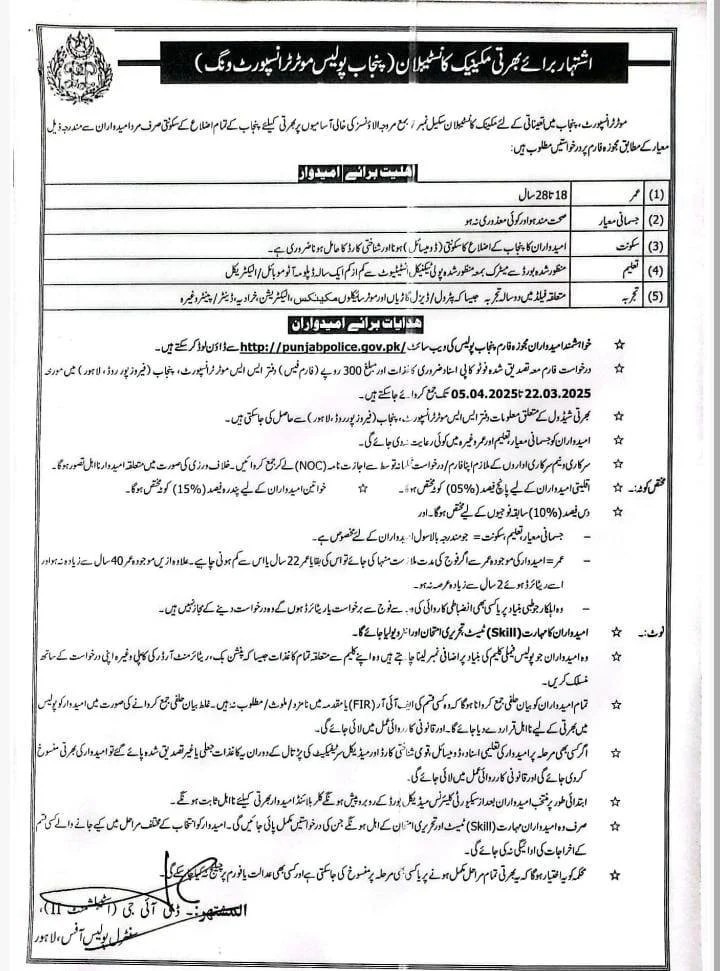 اشتہار برائے بھرتی مکینیک کانسٹیبلان (پنجاب پولیس موٹر ٹرانسپورٹ ونگ)
موٹر ٹرانسپورٹ، پنجاب میں تعیناتی کے لئے مکینیک کانسٹیبلان سکیل نمبر مروجہ الاؤنسز کی خالی آسامیوں پر بھرتی کیلئے پنجاب کے تمام اضلاع کے سکونتی صرف مرد امیدواران سے مندرجہ ذیل
معیار کے مطابق مجوزہ فارم پر درخواستیں مطلوب ہیں:
اہلیت برائے امیدوار
(1) عمر 18 تا 28 سال
(2) جسمانی معیار صحت مند ہو اور کوئی معذوری نہ ہو
(3) سکونت امیدواران کا پنجاب کے اضلاع کا سکونتی (ڈومیسائل) ہونا اور شناختی کارڈ کا حامل ہونا ضروری ہے۔
(4) تعلیم منظور شدہ بورڈ سے میٹرک بمعہ منظور شدہ پولی ٹیکنیکل انسٹیٹیوٹ سے کم از کم ایک سالہ ڈپلومہ آٹو موبائل/الیکٹریکل
(5) تجربہ متعلقہ فیلڈ میں دو سالہ تجربہ جیسا کہ پٹرول/ڈیزل گاڑیاں اور موٹر سائیکلوں مکینکس، الیکٹریشن، خرادیہ، ڈینٹر/پینٹر وغیرہ
ہدایات برائے امیدواران
☆ خواہشمند امیدواران مجوزہ فارم پنجاب پولیس کی ویب سائٹ http://punjabpolice.gov.pk/ سے ڈاؤن لوڈ کر سکتے ہیں۔
☆ درخواست فارم معہ تصدیق شدہ فوٹو کاپی اسناد ضروری کاغذات اور مبلغ 300 روپے (فارم فیس) دفتر ایس ایس موٹر ٹرانسپورٹ، پنجاب (فیروز پور روڈ، لاہور) میں مورخہ
22.03.2025 تا 05.04.2025 تک جمع کروائے جا سکتے ہیں۔
☆ بھرتی شیڈول کے متعلق معلومات دفتر ایس ایس موٹر ٹرانسپورٹ، پنجاب (فیروز پور روڈ، لاہور) سے حاصل کی جا سکتی ہیں۔
☆ امیدواران کو جسمانی معیار تعلیم اور عمر وغیرہ میں کوئی رعایت نہ دی جائے گی۔
☆ سرکاری و نیم سرکاری اداروں کے ملازم اپنا فارم/درخواست توسط سے اجازت نامہ (NOC) لے کر جمع کروائیں۔ خلاف ورزی کی صورت میں متعلقہ امیدوار نا اہل تصور ہوگا۔
مختص کوٹہ:۔ ☆ اقلیتی امیدواران کے لیے پانچ فیصد (05%) کوٹہ مختص ہوگا۔ ☆ خواتین امیدواران کے لیے پندرہ فیصد (15%) کوٹہ مختص ہوگا۔
☆ دس فیصد (10%) سابقہ فوجیوں کے لیے مختص ہوگا۔ اور
– جسمانی معیار، تعلیم، سکونت = جو مندرجہ بالا سول امیدواران کے لئے مخصوص ہے۔
– عمر = امیدوار کی موجودہ عمر سے اگر فوج کی مدت ملازمت منہا کی جائے تو اس کی بقایا عمر 22 سال یا اس سے کم ہونی چاہیے۔ علاوہ ازیں موجودہ عمر 40 سال سے زیادہ نہ ہو اور
اسے ریٹائرڈ ہوئے 2 سال سے زیادہ عرصہ نہ ہو۔
– وہ اہلکار جو طبی بنیاد پر یا کسی بھی انضباطی کاروائی کی وجہ سے فوج سے برخواست یا ریٹائرڈ ہوں گے وہ درخواست دینے کے مجاز نہیں ہیں۔
نوٹ:۔ ☆ امیدواران کا مہارت (Skill) ٹیسٹ تحریری امتحان اور انٹرویو لیا جائے گا۔
☆ وہ امیدواران جو پولیس فیملی کلیم کی بنیاد پر اضافی نمبر لینا چاہتے ہیں وہ اپنے کلیم سے متعلقہ تمام کاغذات جیسا کہ پنشن بک، ریٹائرمنٹ آرڈر کی کاپی وغیرہ اپنی درخواست کے ساتھ
منسلک کریں۔
☆ تمام امیدواران کو بیان حلفی جمع کروانا ہوگا کہ وہ کسی قسم کی ایف آئی آر (FIR) یا مقدمہ میں نامزد/ملوث/مطلوب نہ ہیں۔ غلط بیان حلفی جمع کروانے کی صورت میں امیدوار کو پولیس
میں بھرتی کے لیے نا اہل قرار دے دیا جائے گا۔ اور قانونی کارروائی عمل میں لائی جائے گی۔
☆ اگر کسی بھی مرحلہ پر امیدوار کی تعلیمی اسناد، ڈومیسائل، قومی شناختی کارڈ اور میڈیکل سرٹیفکیٹ کی پڑتال کے دوران یہ کاغذات جعلی یا غیر تصدیق شدہ پائے گئے تو امیدوار کی بھرتی منسوخ
کر دی جائے گی اور قانونی کارروائی عمل میں لائی جائے گی۔
☆ ابتدائی طور پر منتخب امیدواران بعد از سیکیورٹی کلیئرنس میڈیکل بورڈ کے روبرو پیش ہونگے کلر بلائنڈ امیدوار بھرتی کیلئے نا اہل ثابت ہونگے۔
☆ صرف وہ امیدواران مہارت (Skill) ٹیسٹ اور تحریری امتحان کے اہل ہونگے جن کی درخواستیں مکمل پائی جائیں گی۔ امیدوار کو انتخاب کے مختلف مراحل میں کیے جانے والے کسی قسم
کے اخراجات کی ادائیگی نہ کی جائے گی۔
☆ محکمہ کو یہ اختیار ہوگا کہ یہ بھرتی تمام مراحل مکمل ہونے پر یا کسی بھی مرحلہ پر منسوخ کی جا سکتی ہے اور کسی بھی عدالت یا فورم پر چیلنج
المشتہر:۔ ڈی آئی جی (اسٹیبلشمنٹ II)،
سنٹرل پولیس آفس، لاہور